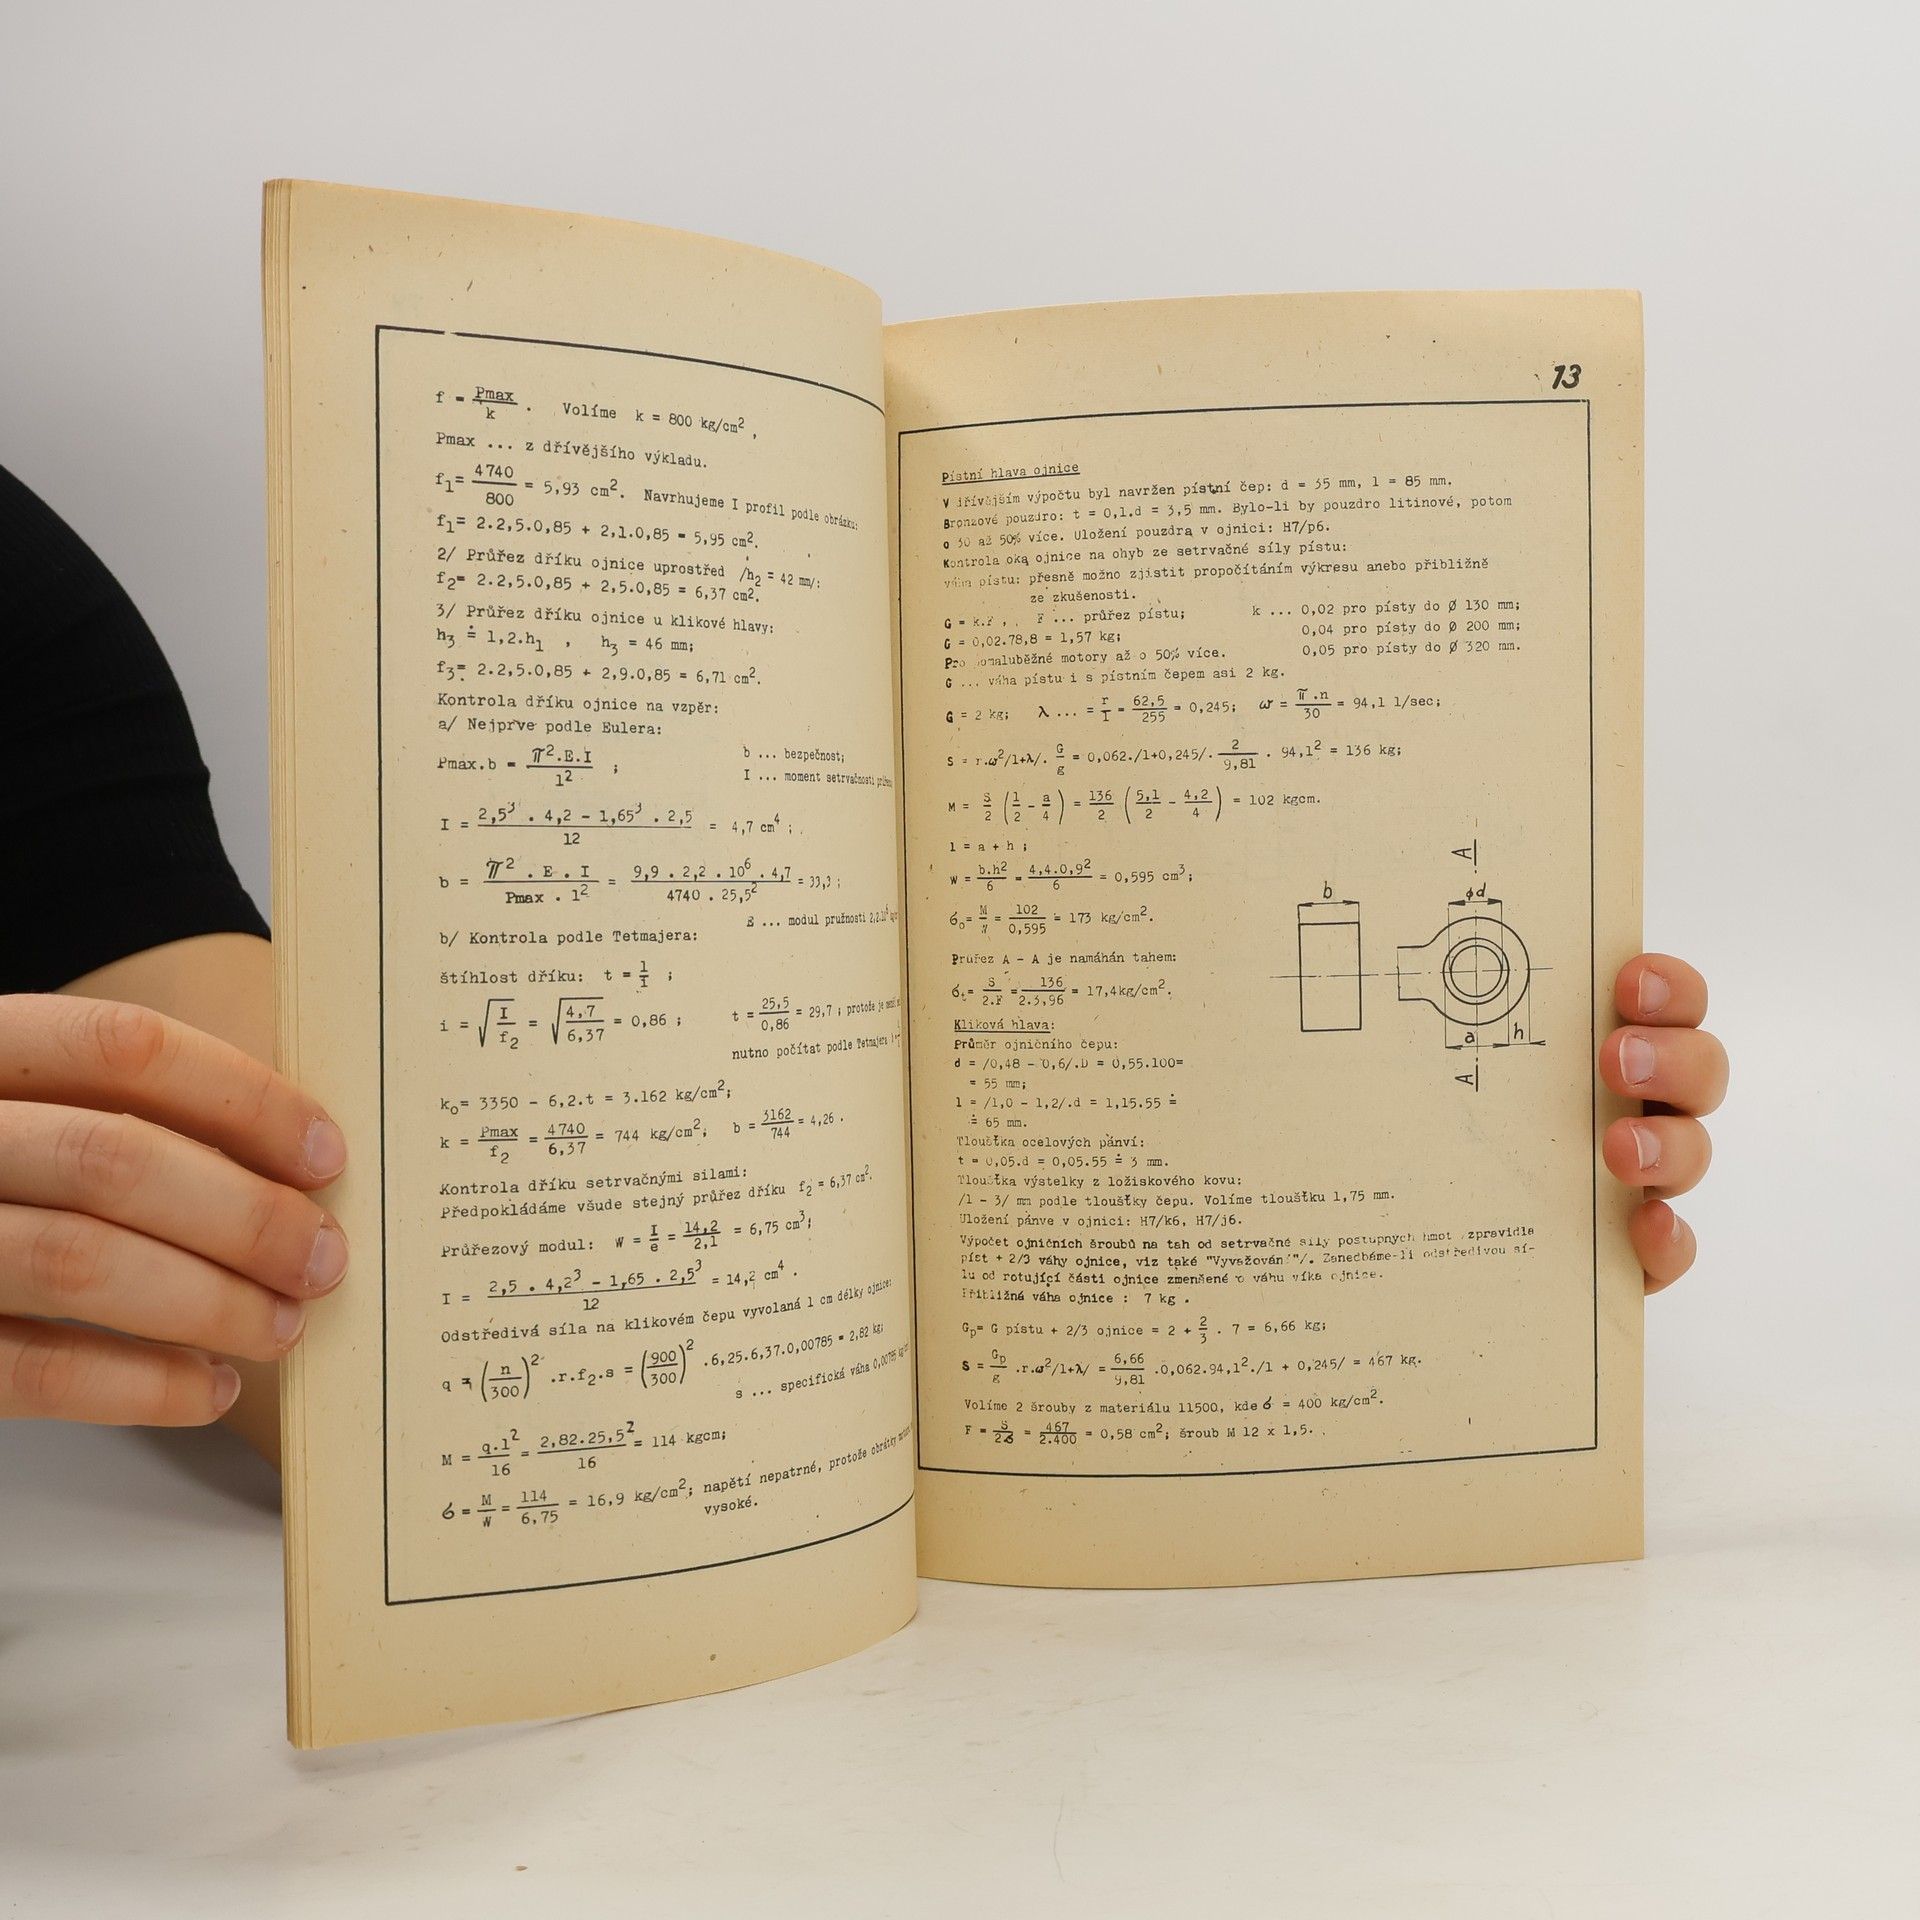 f = Pmax / k . Volíme k = 800 kg/cm² ,
Pmax ... z dřívějšího výkladu.
f₁= 4740 / 800 = 5,93 cm². Navrhujeme I profil podle obrázku:
f₁= 2.2,5.0,85 + 2,1.0,85 = 5,95 cm².
2/ Průřez dříku ojnice uprostřed /h₂ = 42 mm/:
f₂= 2.2,5.0,85 + 2,5.0,85 = 6,37 cm².
3/ Průřez dříku ojnice u klikové hlavy:
h₃ ≐ 1,2.h₁ , h₃ = 46 mm;
f₃= 2.2,5.0,85 + 2,9.0,85 = 6,71 cm².
Kontrola dříku ojnice na vzpěr:
a/ Nejprve podle Eulera:
Pmax.b = π².E.I / l² ;
b ... bezpečnost;
I ... moment setrvačnosti
I = 2,5³ . 4,2 - 1,65³ . 2,5 / 12 = 4,7 cm⁴ ;
b = π² . E . I / Pmax . l² = 9,9 . 2,2 . 10⁶ . 4,7 / 4740 . 25,5² = 33,3 ;
E ... modul pružnosti 2,2.10⁶
b/ Kontrola podle Tetmajera:
štíhlost dříku: t = l / i ;
i = √ I / f₂ = √ 4,7 / 6,37 = 0,86 ; t = 25,5 / 0,86 = 29,7 ; protože je
nutno počítat podle Tetmajera
k₀= 3350 - 6,2.t = 3.162 kg/cm²;
k = Pmax / f₂ = 4740 / 6,37 = 744 kg/cm²; b = 3162 / 744 = 4,26 .
Kontrola dříku setrvačnými silami:
Předpokládáme všude stejný průřez dříku f₂ = 6,37 cm².
Průřezový modul: W = I / e = 14,2 / 2,1 = 6,75 cm³;
I = 2,5 . 4,2³ - 1,65 . 2,5³ / 12 = 14,2 cm⁴ .
Odstředivá síla na klikovém čepu vyvolaná 1 cm délky ojnice:
q = (n / 300)² .r.f₂.s = (900 / 300)² .6,25.6,37.0,00785 = 2,82 kg;
s ... specifická váha 0,00785
M = q.l² / 16 = 2,82.25,5² / 16 = 114 kgcm;
σ = M / W = 114 / 6,75 = 16,9 kg/cm²; napětí nepatrné, protože obrátky
vysoké.
13
Pístní hlava ojnice
V dřívějším výpočtu byl navržen pístní čep: d = 35 mm, l = 85 mm.
Bronzové pouzdro: t = 0,1.d = 3,5 mm. Bylo-li by pouzdro litinové, potom
o 30 až 50% více. Uložení pouzdra v ojnici: H7/p6.
Kontrola oka ojnice na ohyb ze setrvačné síly pístu:
váha pístu: přesně možno zjistit propočítáním výkresu anebo přibližně
ze zkušenosti.
G = k.F , F ... průřez pístu; k ... 0,02 pro písty do Ø 130 mm;
G = 0,02.78,8 = 1,57 kg; 0,04 pro písty do Ø 200 mm;
Pro pomaluběžné motory až o 50% více. 0,05 pro písty do Ø 320 mm.
G ... váha pístu i s pístním čepem asi 2 kg.
G = 2 kg; λ ... = r / l = 62,5 / 255 = 0,245; ω = π.n / 30 = 94,1 1/sec;
S = r.ω²/1+λ/. G / g = 0,062./1+0,245/. 2 / 9,81 . 94,1² = 136 kg;
M = S / 2 (l / 2 - a / 4) = 136 / 2 (5,1 / 2 - 4,2 / 4) = 102 kgcm.
l = a + h ;
W = b.h² / 6 = 4,4.0,9² / 6 = 0,595 cm³;
σ₀= M / W = 102 / 0,595 = 173 kg/cm².
Průřez A - A je namáhán tahem:
σt= S / 2.F = 136 / 2.3,96 = 17,4kg/cm².
A
b
φd
a
h
A
Kliková hlava:
Průměr ojničního čepu:
d = /0,48 - 0,6/.D = 0,55.100=
= 55 mm;
l = /1,0 - 1,2/.d = 1,15.55 ≐
≐ 65 mm.
Tloušťka ocelových pánví:
t = 0,05.d = 0,05.55 ≐ 3 mm.
Tloušťka výstelky z ložiskového kovu:
/1 - 3/ mm podle tloušťky čepu. Volíme tloušťku 1,75 mm.
Uložení pánve v ojnici: H7/k6, H7/j6.
Výpočet ojničních šroubů na tah od setrvačné síly postupných hmot /zpravidla
píst + 2/3 váhy ojnice, viz také "Vyvažování"/. Zanedbáme-li odstředivou sí-
lu od rotující části ojnice zmenšené o váhu víka ojnice.
Přibližná váha ojnice : 7 kg .
Gp= G pístu + 2/3 ojnice = 2 + 2/3 . 7 = 6,66 kg;
S = Gp / g .r.ω²/1+λ/ = 6,66 / 9,81 .0,062.94,1²./1 + 0,245/ = 467 kg.
Volíme 2 šrouby z materiálu 11500, kde σ = 400 kg/cm².
F = S / 2σ = 467 / 2.400 = 0,58 cm²; šroub M 12 x 1,5.